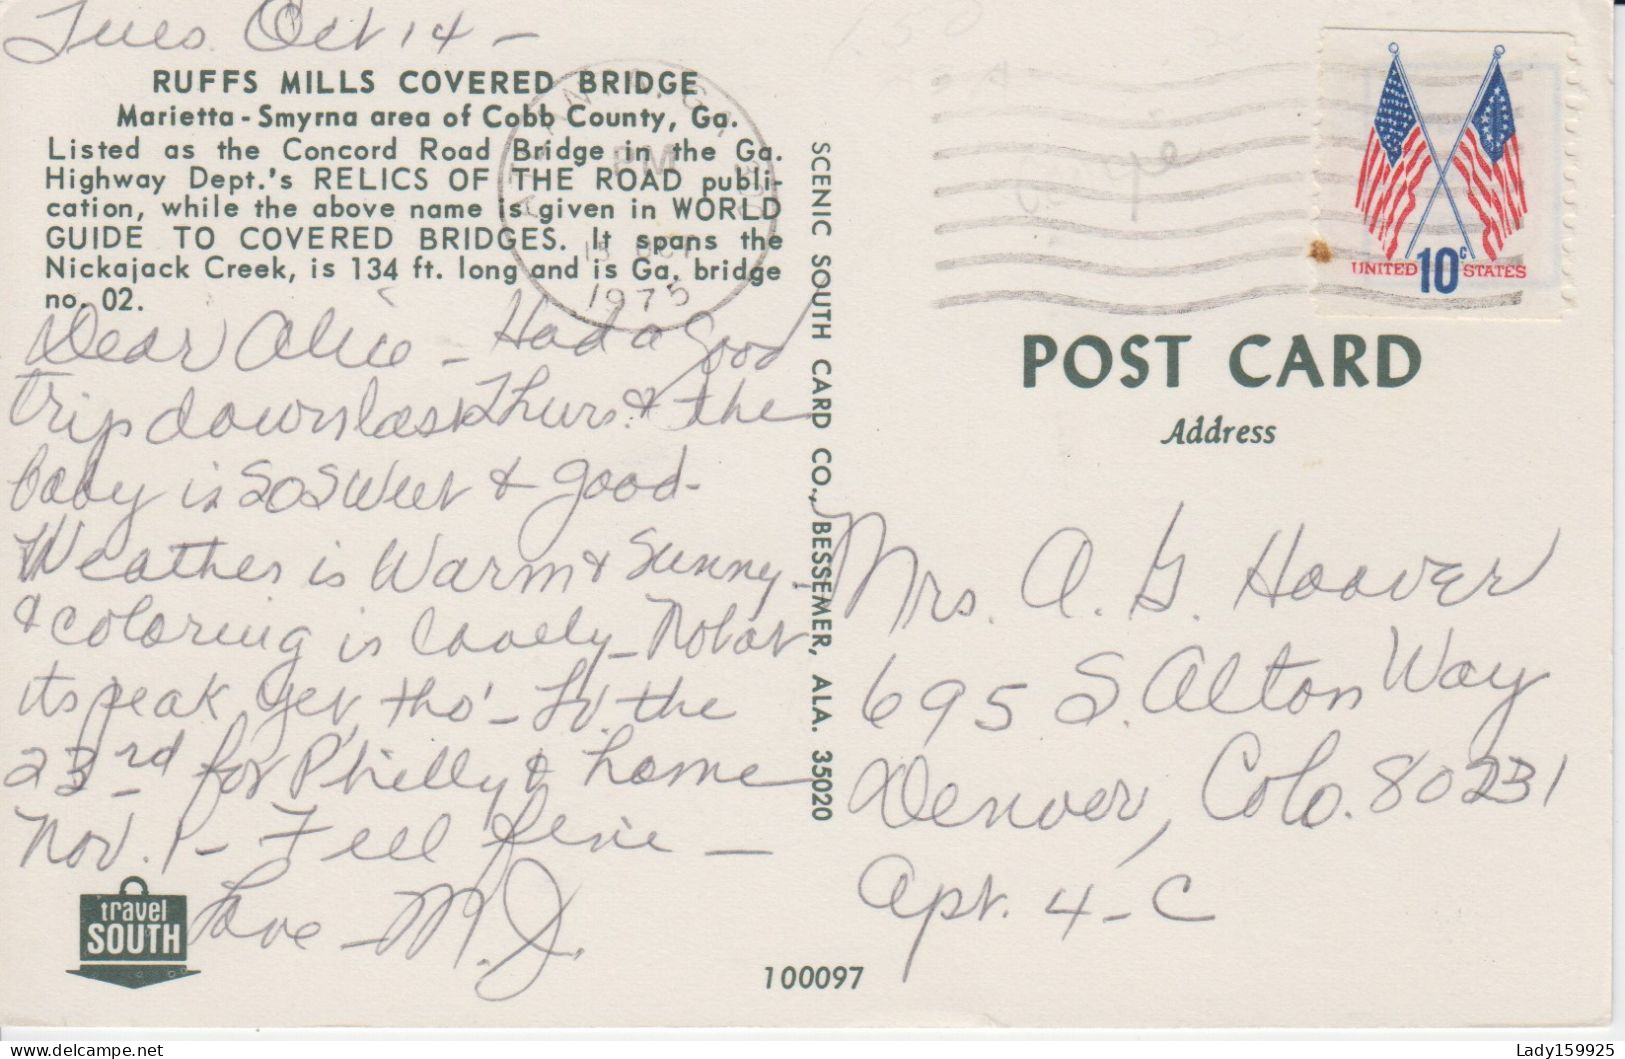 Tues. Oct 14 –
RUFFS MILLS COVERED BRIDGE
Marietta - Smyrna area of Cobb County, Ga.
Listed as the Concord Road Bridge in the Ga.
Highway Dept.'s RELICS OF THE ROAD publi-
cation, while the above name is given in WORLD
GUIDE TO COVERED BRIDGES. It spans the
Nickajack Creek, is 134 ft. long and is Ga. bridge
no. 02.
Dear Alice – Had a good
trip down last Thurs. & the
baby is so sweet & good –
Weather is warm & sunny –
& coloring is lovely – Not at
its peak yet, tho' – Lv. the
23rd for Philly & home
Nov. 1 – Feel fine –
Love – M. J.
travel
SOUTH
SCENIC SOUTH CARD CO., BESSEMER, ALA. 35020
100097
PM
OCT
1975
UNITED 10c STATES
POST CARD
Address
Mrs. A. G. Hoover
695 S. Alton Way
Denver, Colo. 80231
Apt. 4-C
Lady159925